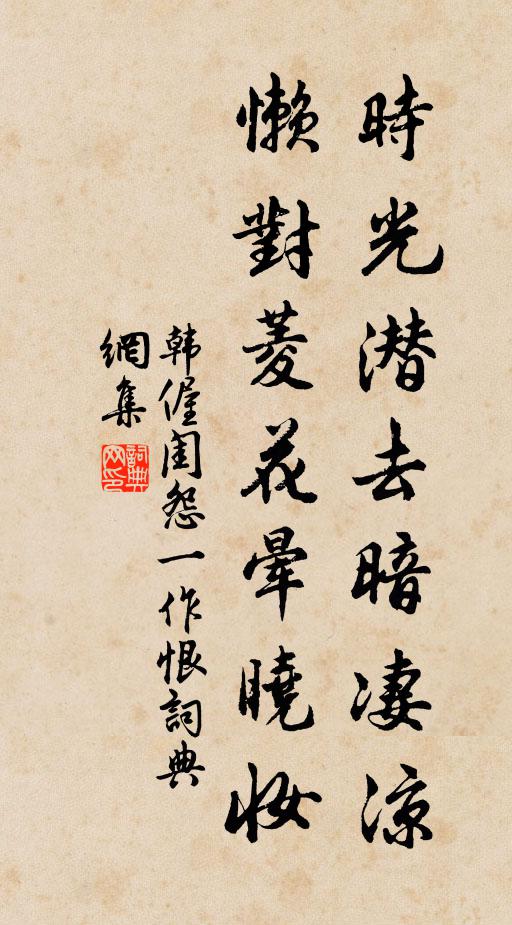 時光潜去暗凄涼
懶對菱花暈曉妝
韩偓闺怨一作恨詞典
網集
詞典网印